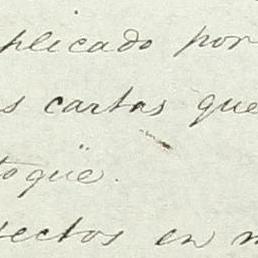 plicado por
s cartas que
toqüe.
ectos en n